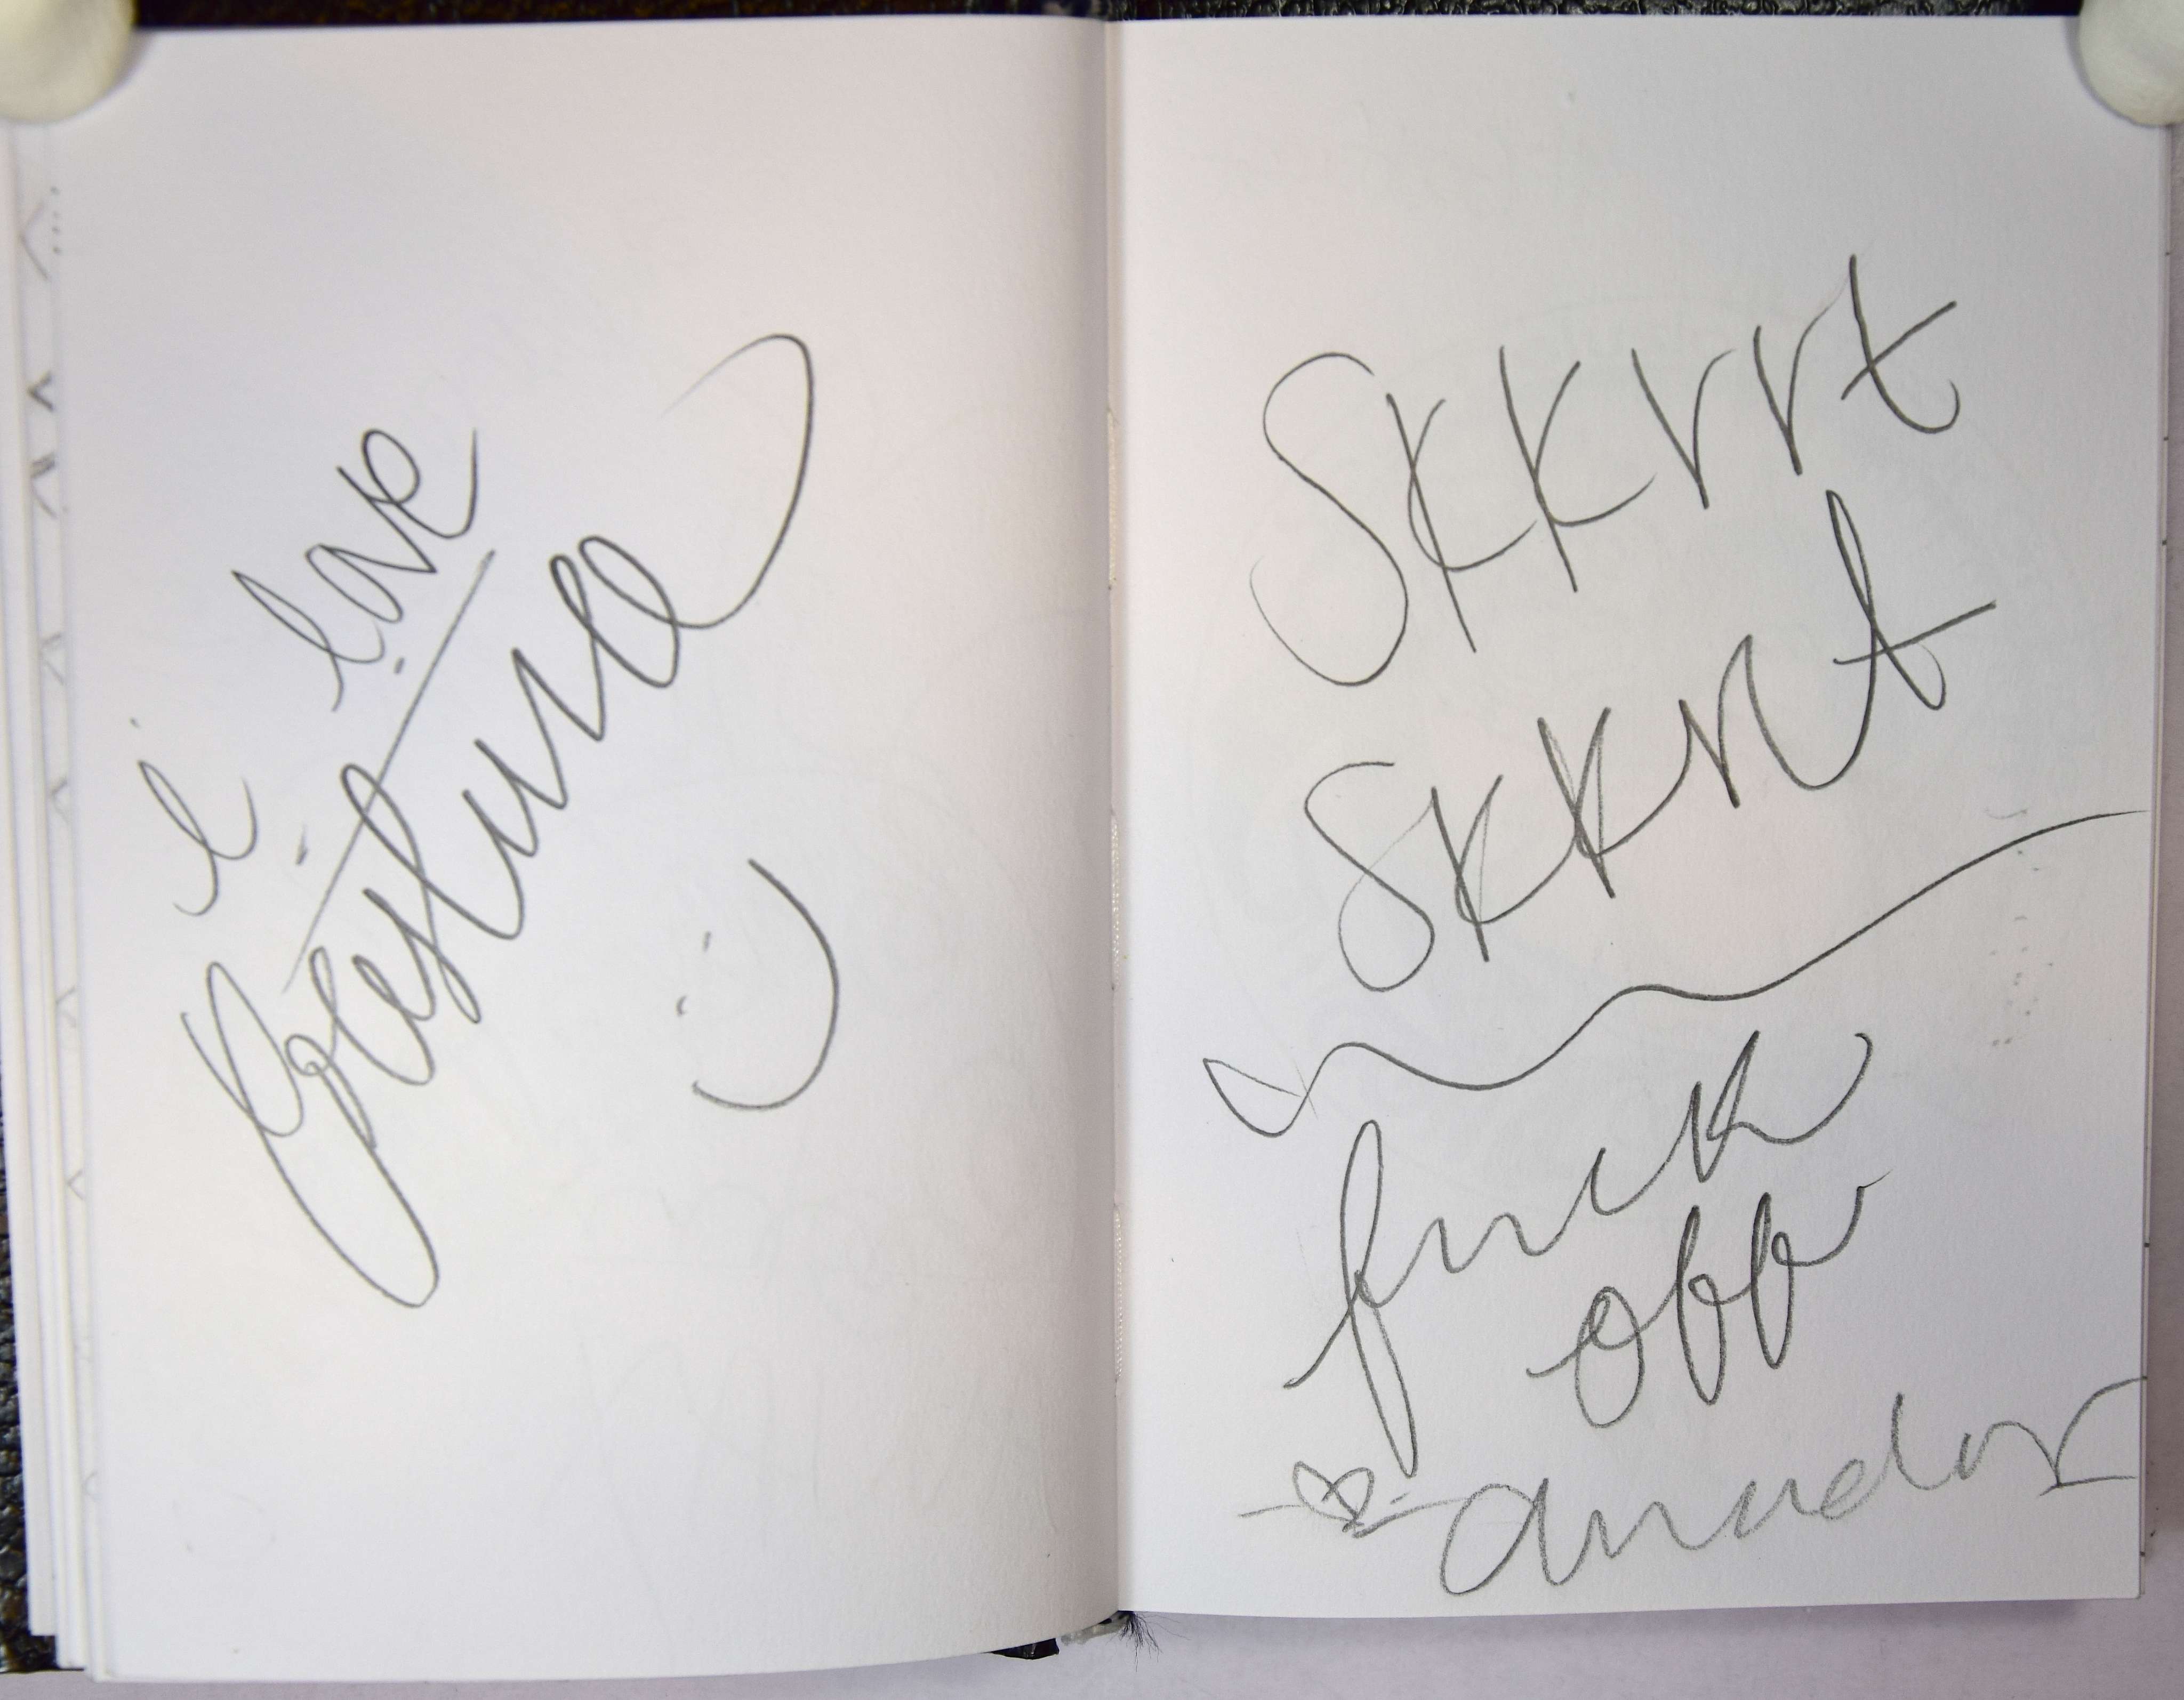 i love
Skkrrt
skkrrt
fuck
off